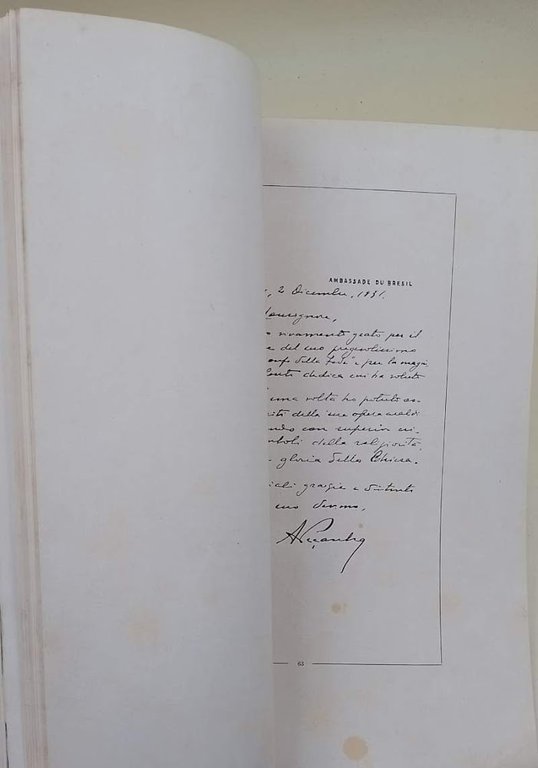 AMBASSADE DU BRESIL
, 2 Dicembre, 1931.
Monsignore,
vivamente grato per il
e del suo pregevolissimo
onfo della fede" e per la
dedica cui ha voluto
una volta ho potuto
della sua opera
ndo con superior
mboli della religiosità
gloria della Chiesa.
iali grazie e distinti
suo devmo,
63